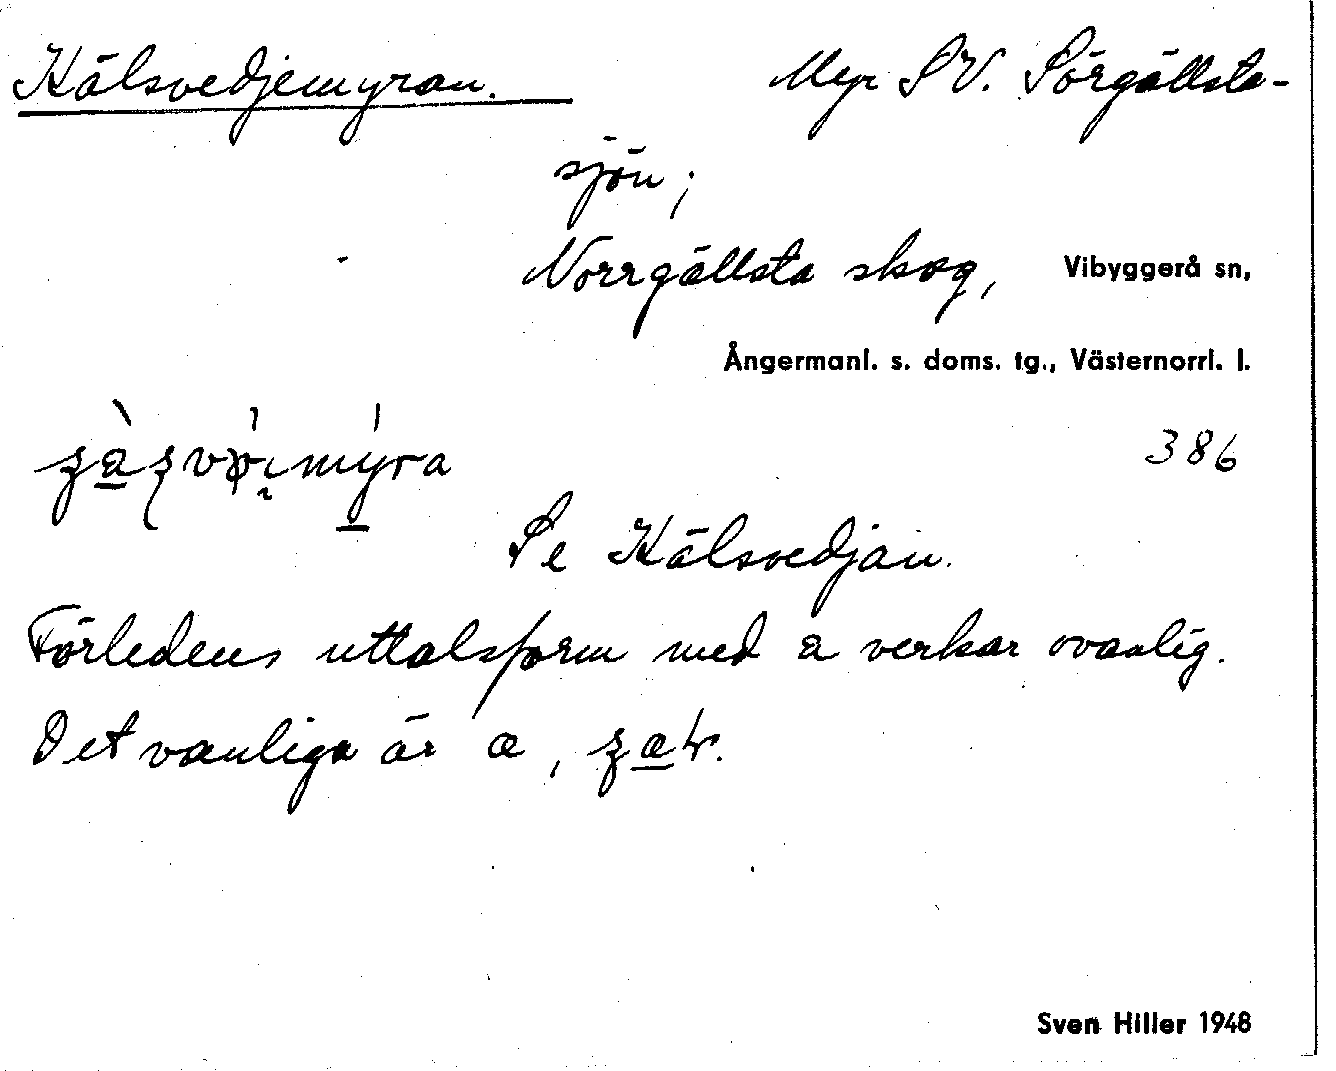 Kälsvedjemyran. Myr SV. Sörgällsta-
sjön;
Norrgällsta skog, Vibyggerå sn,
Ångermanl. s. doms. tg., Västernorrl. l.
386
Se Kälsvedjan.
Förledens uttalsform med a verkar ovanlig.
Det vanliga är æ,
Sven Hiller 1948